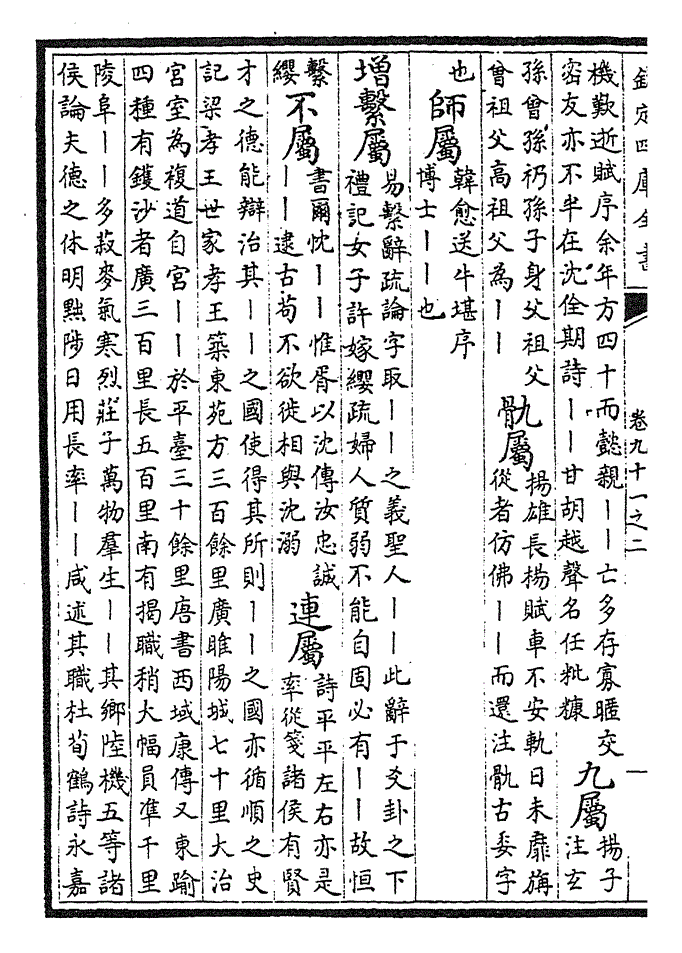 欽定四庫全書
卷九十一之二
一
機歎逝賦序余年方四十而懿親丨丨亡多存寡暱交
密友亦不半在沈佺期詩丨丨甘胡越聲名任粃糠
九屬
揚子
注玄
孫曾孫礽孫子身父祖父
曾祖父高祖父為丨丨
骩屬
揚雄長楊賦車不安軌日未靡旃
從者仿佛丨丨而還注骩古委字
也
師屬
韓愈送牛堪序
博士丨丨也
增繫屬
易繫辭疏論字取丨丨之義聖人丨丨此辭于爻卦之下
禮記女子許嫁纓疏婦人質弱不能自固必有丨丨故恒
繫
纓
不屬
書爾忱丨丨惟胥以沈傳汝忠誠
丨丨逮古苟不欲徙相與沈溺
連屬
詩平平左右亦是
率從箋諸侯有賢
才之德能辯治其丨丨之國使得其所則丨丨之國亦循順之史
記梁孝王世家孝王築東苑方三百餘里廣睢陽城七十里大治
宮室為複道自宮丨丨於平臺三十餘里唐書西域康傳又東踰
四種有鑊沙者廣三百里長五百里南有揭職稍大幅員準千里
陵阜丨丨多菽麥氣寒烈莊子萬物羣生丨丨其鄉陸機五等諸
侯論夫德之休明黜陟日用長率丨丨咸述其職杜荀鶴詩永嘉